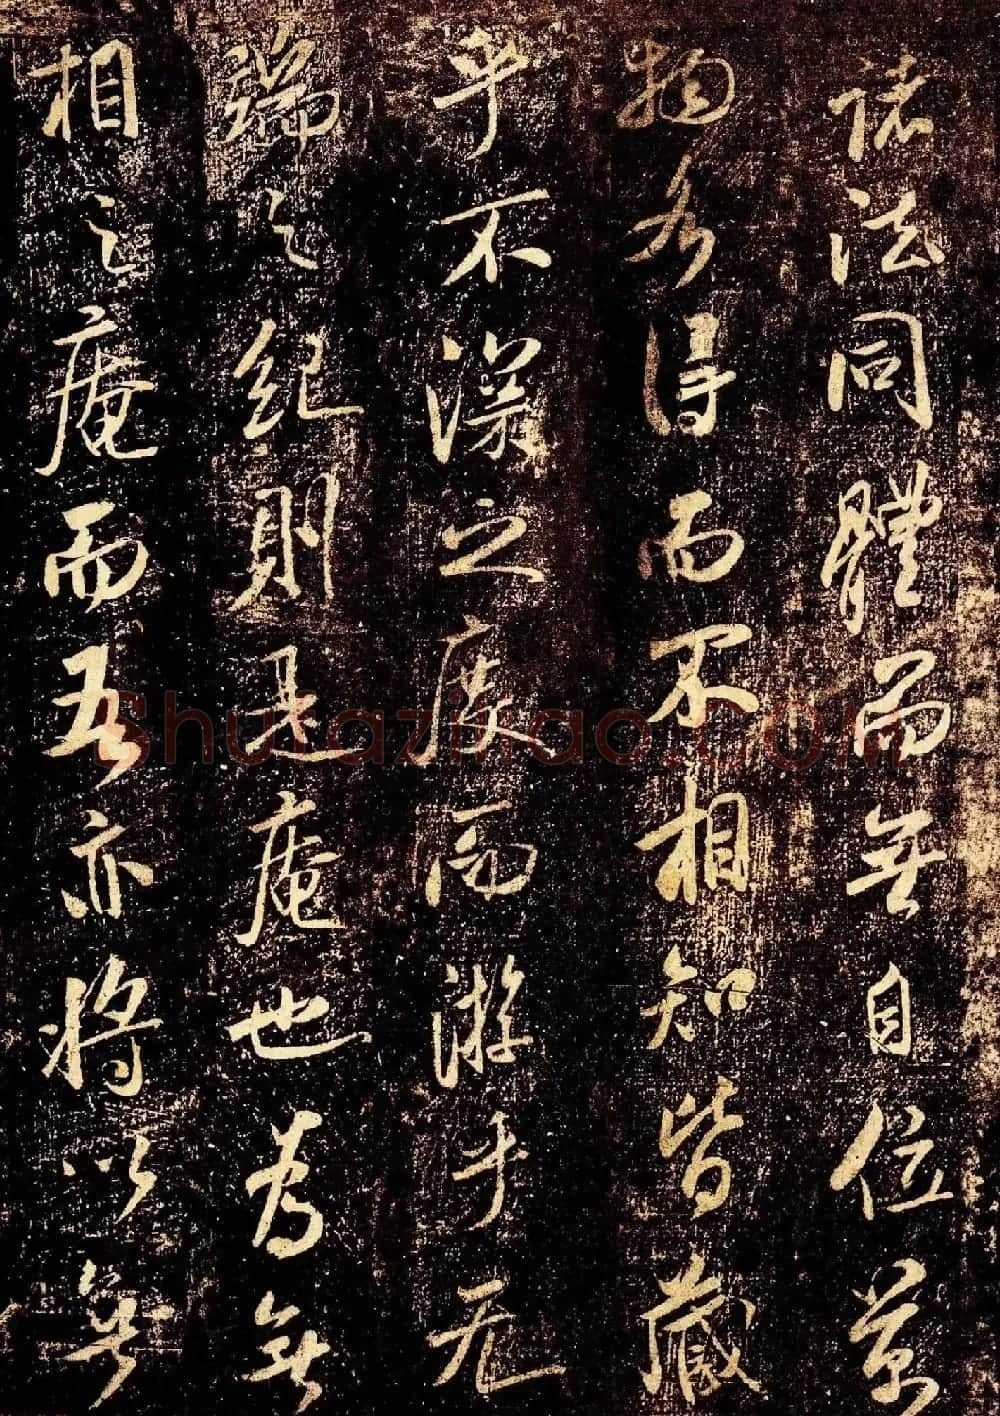 諸法同體而無自位萬
物各得而不相知皆藏
乎不深之度而游乎无
端之紀則是庵也為無
相之庵而吾亦將以無
Shufaziliao.COM